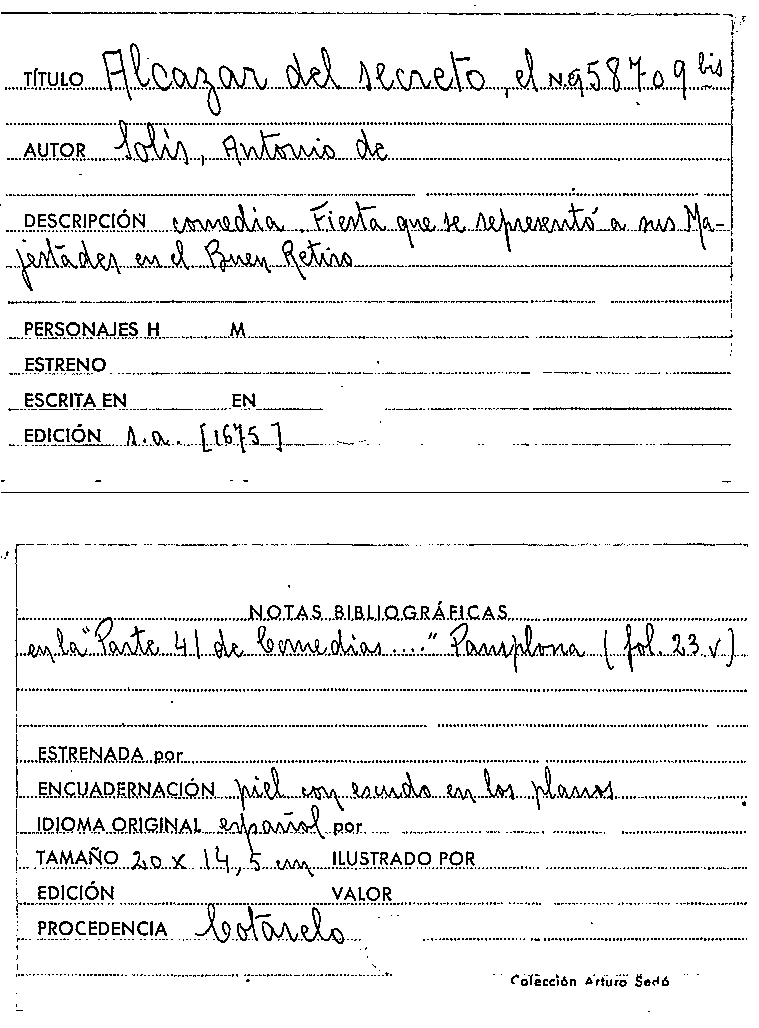 TÍTULO Alcazar del secreto, el Nº 58709 bis
AUTOR Solís, Antonio de
DESCRIPCIÓN comedia. Fiesta que se representó a sus Ma-
jestades en el Buen Retiro
PERSONAJES H M
ESTRENO
ESCRITA EN EN
EDICIÓN s.a. [1675]
NOTAS BIBLIOGRÁFICAS
en la "Parte 41 de Comedias...." Pamplona (fol. 23 v)
ESTRENADA por
ENCUADERNACIÓN piel con escudo en los planos
IDIOMA ORIGINAL español por
TAMAÑO 20 x 14,5 cm ILUSTRADO POR
EDICIÓN VALOR
PROCEDENCIA Cotarelo
Colección Arturo Sedó